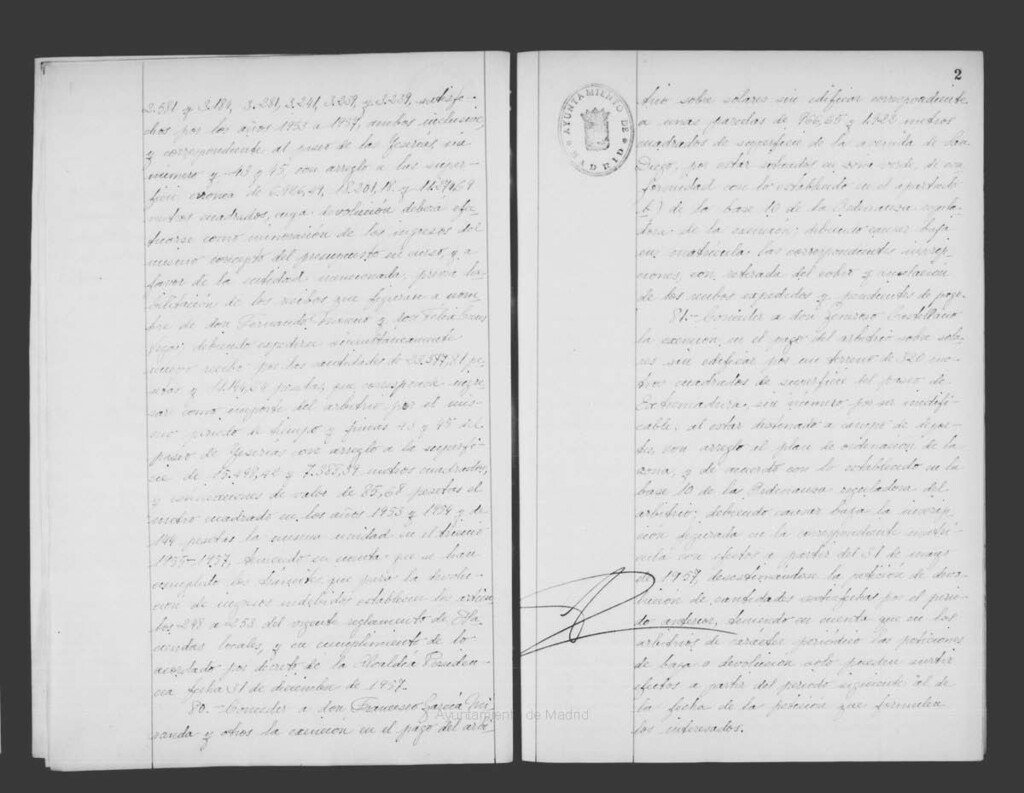 2.581 y 3.184, 3.281, 3.241, 3.239, y 3.239, satisfe-
chos por los años 1953 a 1957, ambos inclusive,
y correspondiente al paseo de las Yeserías sin
número y 43 y 45, con arreglo a las super-
ficies errónea de
metros cuadrados, cuya devolución deberá efec-
tuarse como minoración de los ingresos del
mismo concepto del presupuesto en curso, y a
favor de la entidad mencionada, previa ha-
bilitación de los recibos que figuran a nom-
bre de don Fernando y don Félix
debiendo expedirse simultáneamente
nuevo recibo por las cantidades de 23.547,81 pe-
setas y pesetas, que corresponde ingre-
sar como importe del arbitrio por el mis-
mo período de tiempo y fincas 43 y 45 del
paseo de Yeserías con arreglo a la superfi-
cie de 13.498,42 y 7.388,39 metros cuadrados,
y estimaciones de valor de 85,68 pesetas el
metro cuadrado en los años 1953 y 1954 y de
144 pesetas la misma unidad en el trienio
1955-1957, teniendo en cuenta que se han
cumplido los trámites que para la devolu-
ción de ingresos indebidos establecen los artícu-
los 248 a 253 del vigente reglamento de Ha-
ciendas locales, y en cumplimiento de lo
acordado por decreto de la Alcaldía Presiden-
cia fecha 31 de diciembre de 1957.
80.- Conceder a don Francisco García Mi-
randa y otros la exención en el pago del arbi-
© Ayuntamiento de Madrid
2
AYUNTAMIENTO DE MADRID
trio sobre solares sin edificar correspondiente
a unas parcelas de 956,65 y 1.326 metros
cuadrados de superficie de la avenida de San
Diego, por estar situadas en zona verde, de con-
formidad con lo establecido en el apartado
b) de la base 10 de la Ordenanza regula-
dora de la exacción; debiendo causar baja
en matrícula las correspondientes inscrip-
ciones, con retirada del cobro y anulación
de los recibos expedidos y pendientes de pago.
81.- Conceder a don Generoso Castellano
la exención en el pago del arbitrio sobre sola-
res sin edificar por un terreno de 320 me-
tros cuadrados de superficie del paseo de
Extremadura, sin número, por ser inedifi-
cable, al estar destinado a campo de depor-
tes, con arreglo al plan de ordenación de la
zona, y de acuerdo con lo establecido en la
base 10 de la Ordenanza reguladora del
arbitrio; debiendo causar baja la inscrip-
ción figurada en la correspondiente matrí-
cula con efectos a partir del 31 de mayo
de 1957, desestimándose la petición de devo-
lución de cantidades satisfechas por el perío-
do anterior, teniendo en cuenta que en los
arbitrios de carácter periódico las peticiones
de baja o devolución solo pueden surtir
efectos a partir del período siguiente al de
la fecha de la petición que formulen
los interesados.